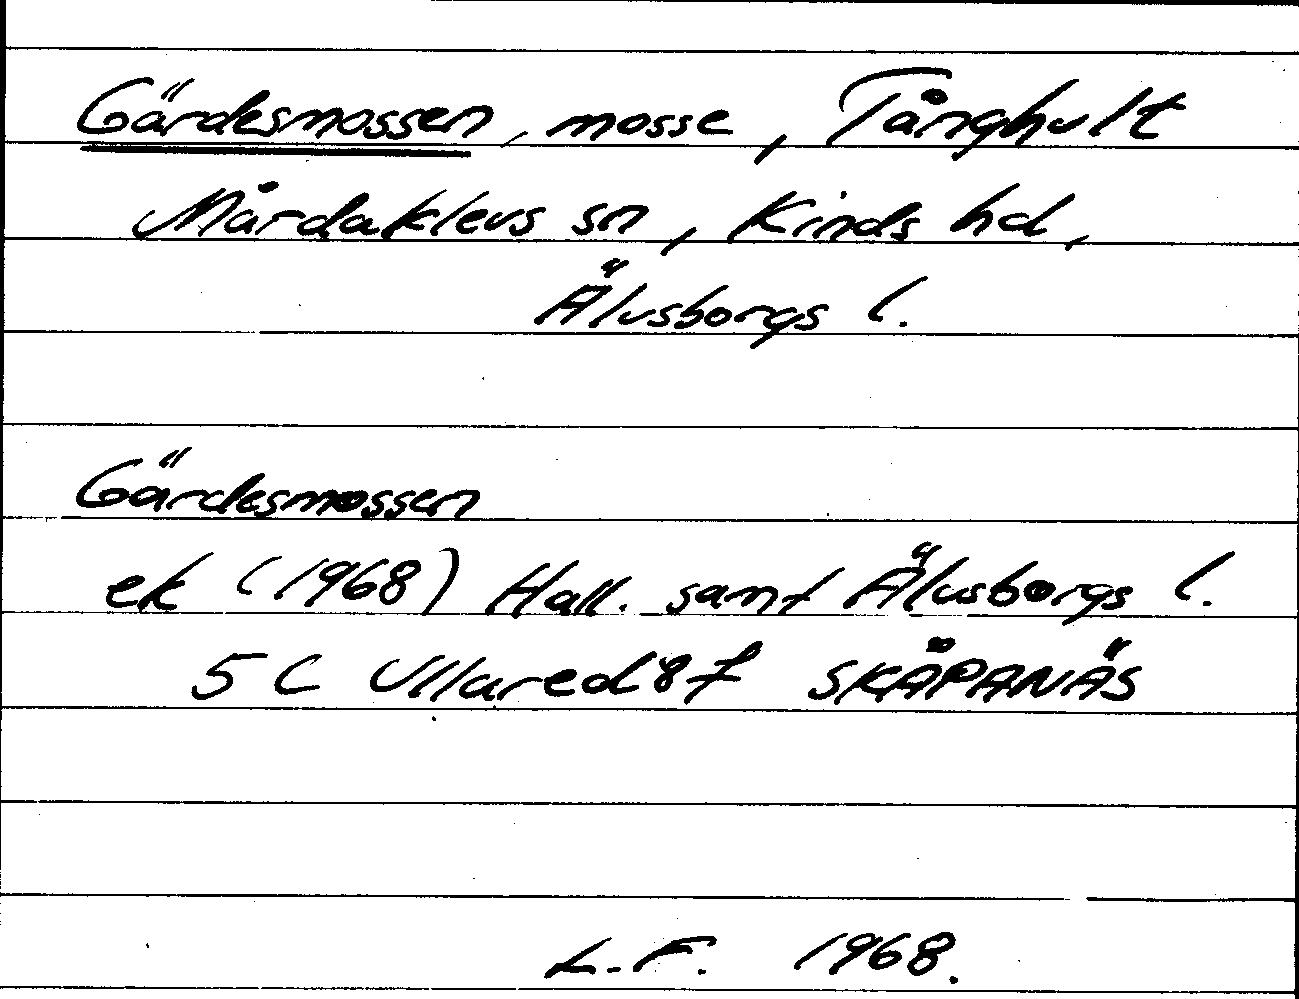 Gärdesmossen, mosse, Tånghult
Mårdaklevs sn, Kinds hd,
Älvsborgs l.
Gärdesmossen
ek (1968) Hall. samt Älvsborgs l.
5 C Ullared 8f SKÅPANÄS
L.F. 1968.